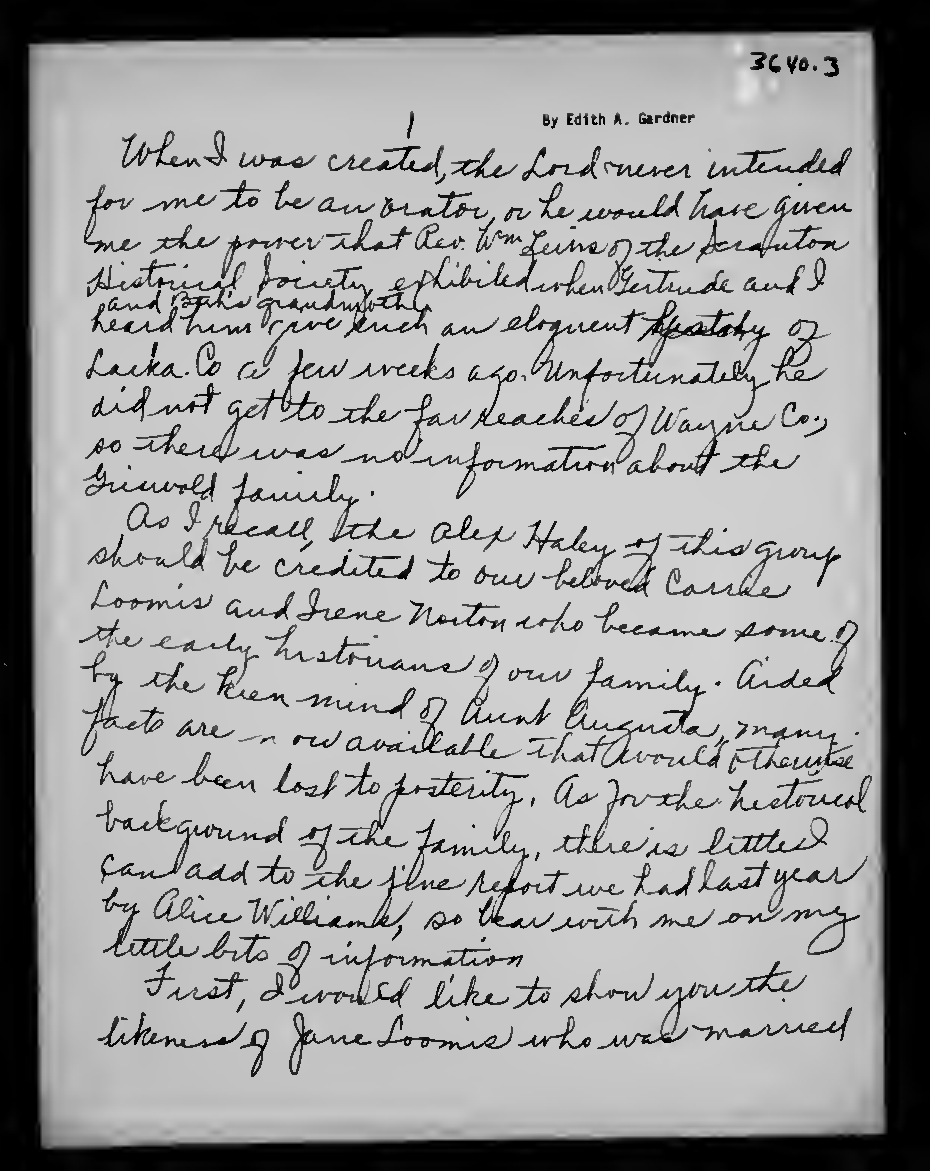 3640.3
1
By Edith A. Gardner
When I was created, the Lord never intended
for me to be an orator, or he would have given
me the power that Rev. Wm Leins of the Scranton
Historical Society exhibited when Gertrude and I
and grandmother
heard him give such an eloquent history of
Lacka. Co a few weeks ago. Unfortunately he
did not get to the far reaches of Wayne Co.,
so there was no information about the
Griswold family.
As I recall, the Alex Haley of this group
should be credited to our beloved Carrie
Loomis and Irene Norton who became some of
the early historians of our family. Aided
by the keen mind of Aunt Augusta, many
facts are now available that would otherwise
have been lost to posterity. As for the historical
background of the family, there is little I
can add to the fine report we had last year
by Alice Williams, so bear with me on my
little bits of information
First, I would like to show you the
likeness of Jane Loomis who was married